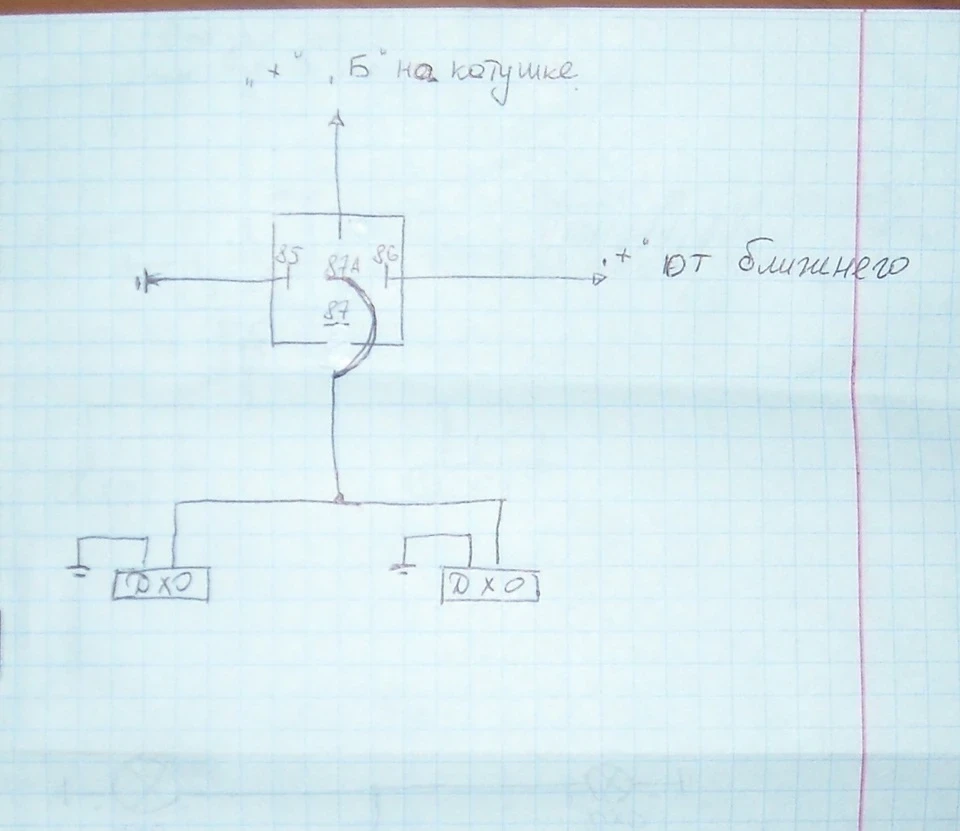 „+" „Б" на катушке
85 87А 86
„+" от ближнего
87
ДХО ДХО